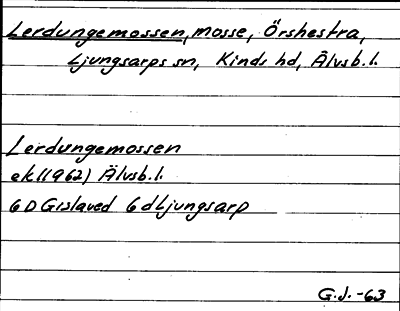 Lerdungemossen, mosse, Örshestra,
Ljungsarps sn, Kinds hd, Älvsb. l.
Lerdungemossen
ek (1962) Älvsb. l.
6D Gislaved 6d Ljungsarp
G.J. -63